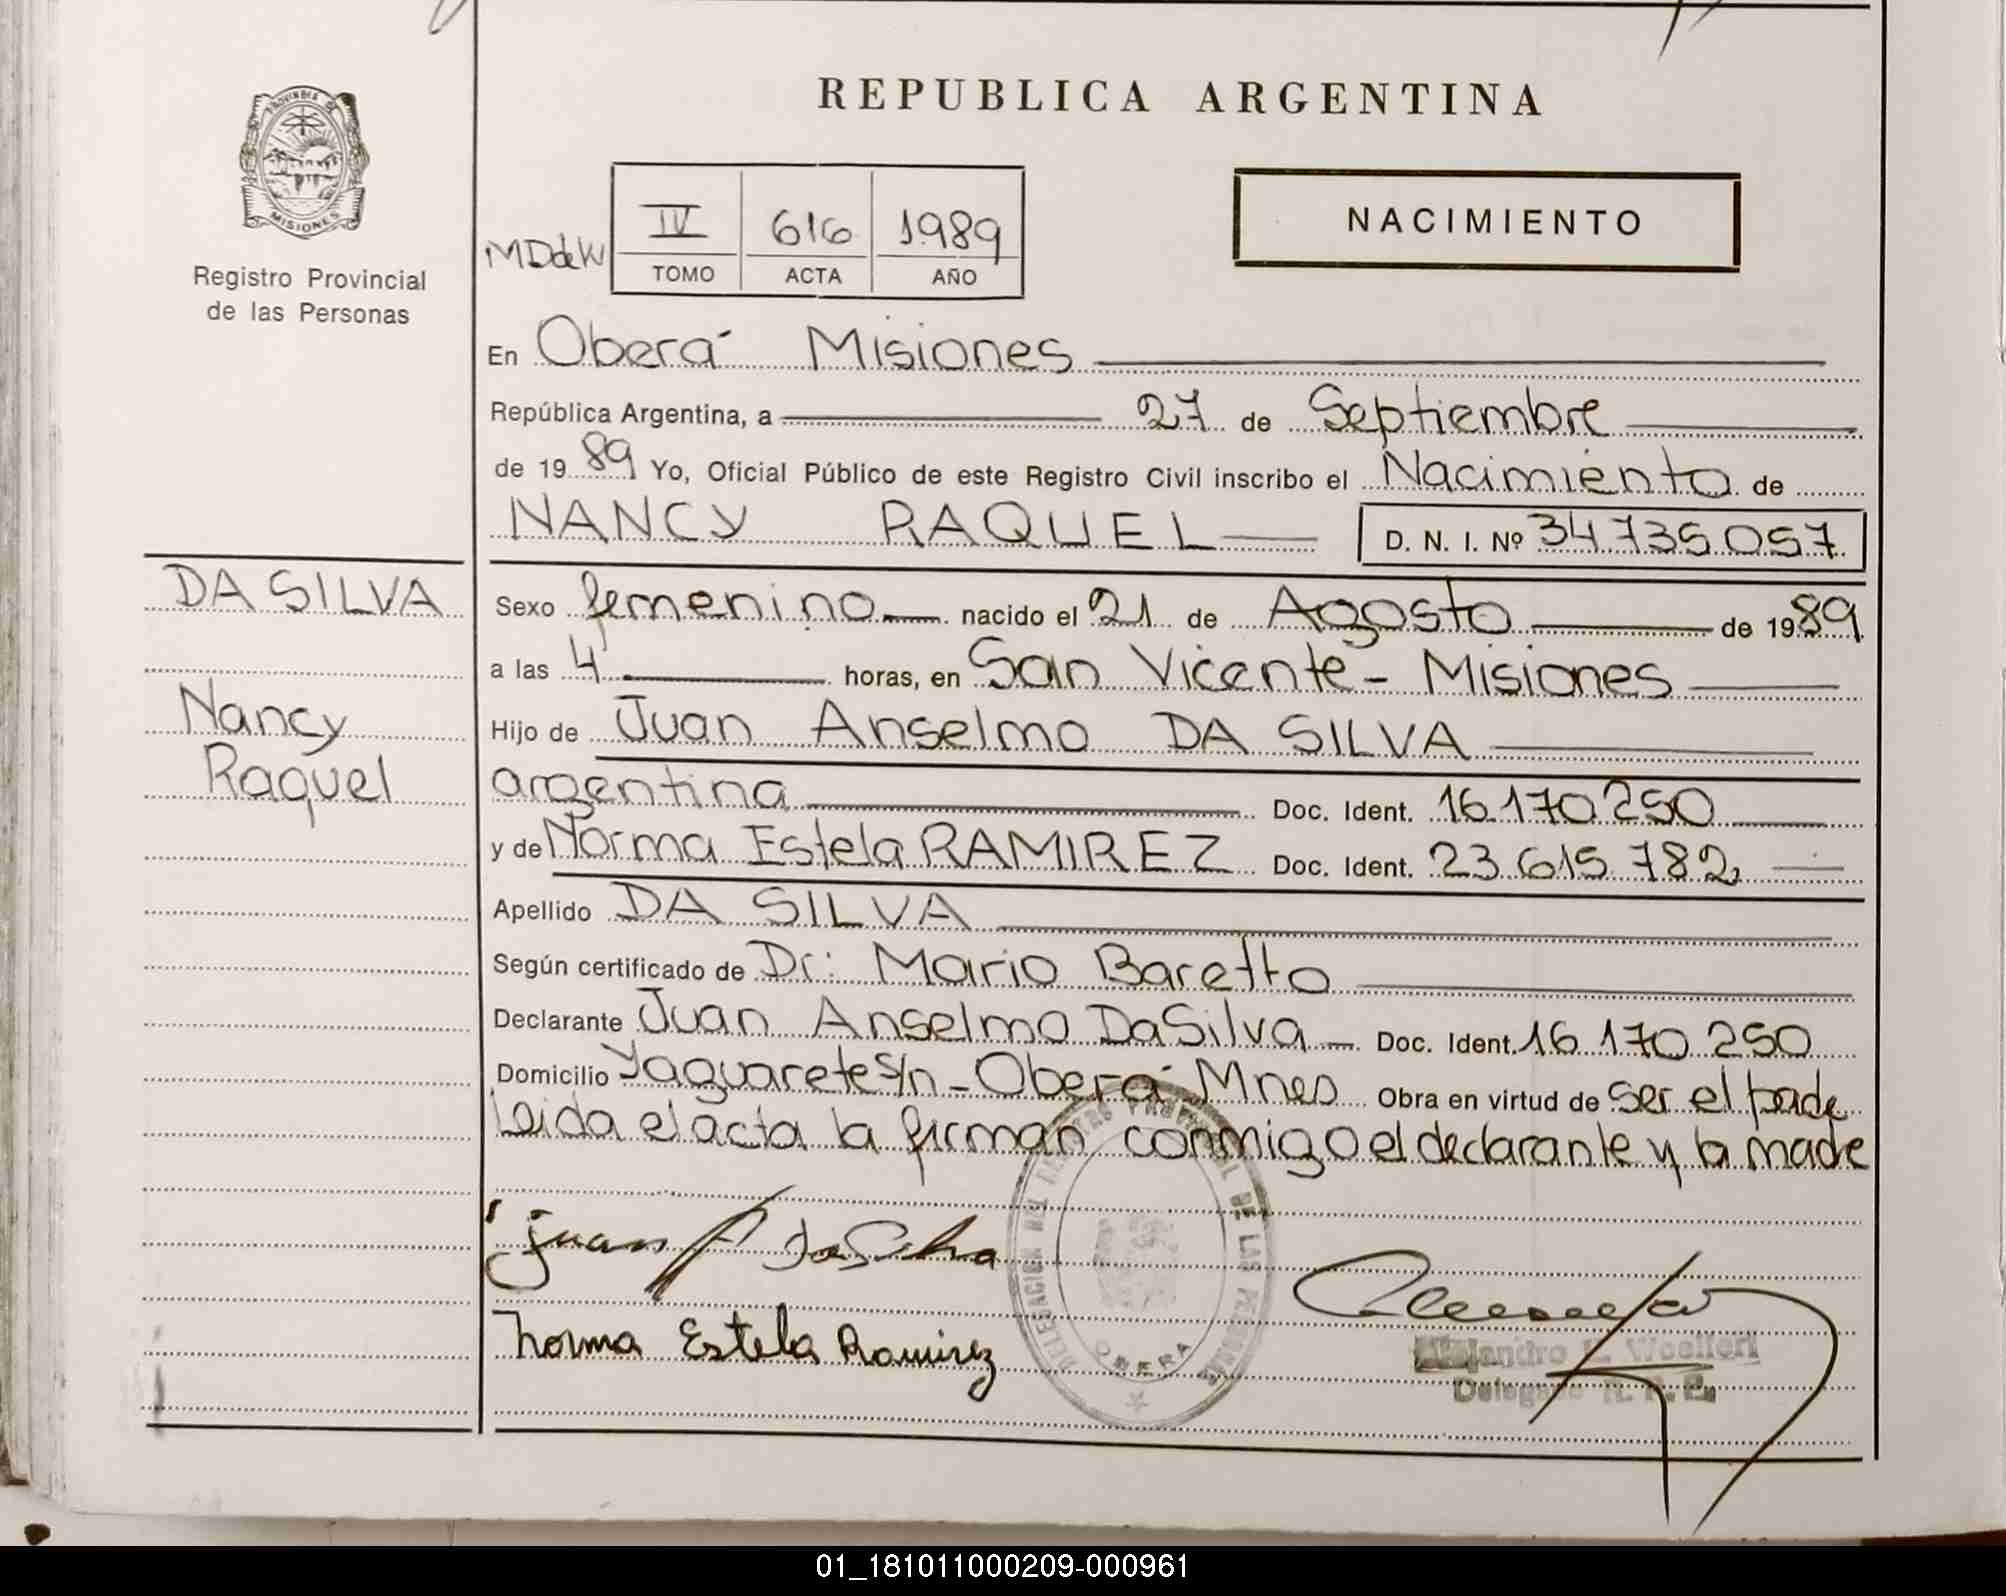 REPUBLICA ARGENTINA
PROVINCIA DE
MISIONES
Registro Provincial
de las Personas
MDdeW
IV 616 1989
TOMO ACTA AÑO
NACIMIENTO
En Oberá Misiones
República Argentina, a 27 de Septiembre
de 1989 Yo, Oficial Público de este Registro Civil inscribo el Nacimiento de
NANCY RAQUEL D. N. I. Nº 34735057
DA SILVA
Nancy
Raquel
Sexo femenino nacido el 21 de Agosto de 1989
a las 4 horas, en San Vicente - Misiones
Hijo de Juan Anselmo DA SILVA
argentina Doc. Ident. 16.170.250
y de Norma Estela RAMIREZ Doc. Ident. 23.615.782
Apellido DA SILVA
Según certificado de Dr: Mario Baretto
Declarante Juan Anselmo DaSilva Doc. Ident. 16.170.250
Domicilio Yaguarete s/n - Oberá Mnes Obra en virtud de ser el padre
Leida el acta la firman conmigo el declarante y la madre
Juan A DaSilva
Norma Estela Ramirez
DELEGACION DEL REGISTRO PROVINCIAL DE LAS PERSONAS
OBERA
Delegado R. P. P.
01_181011000209-000961